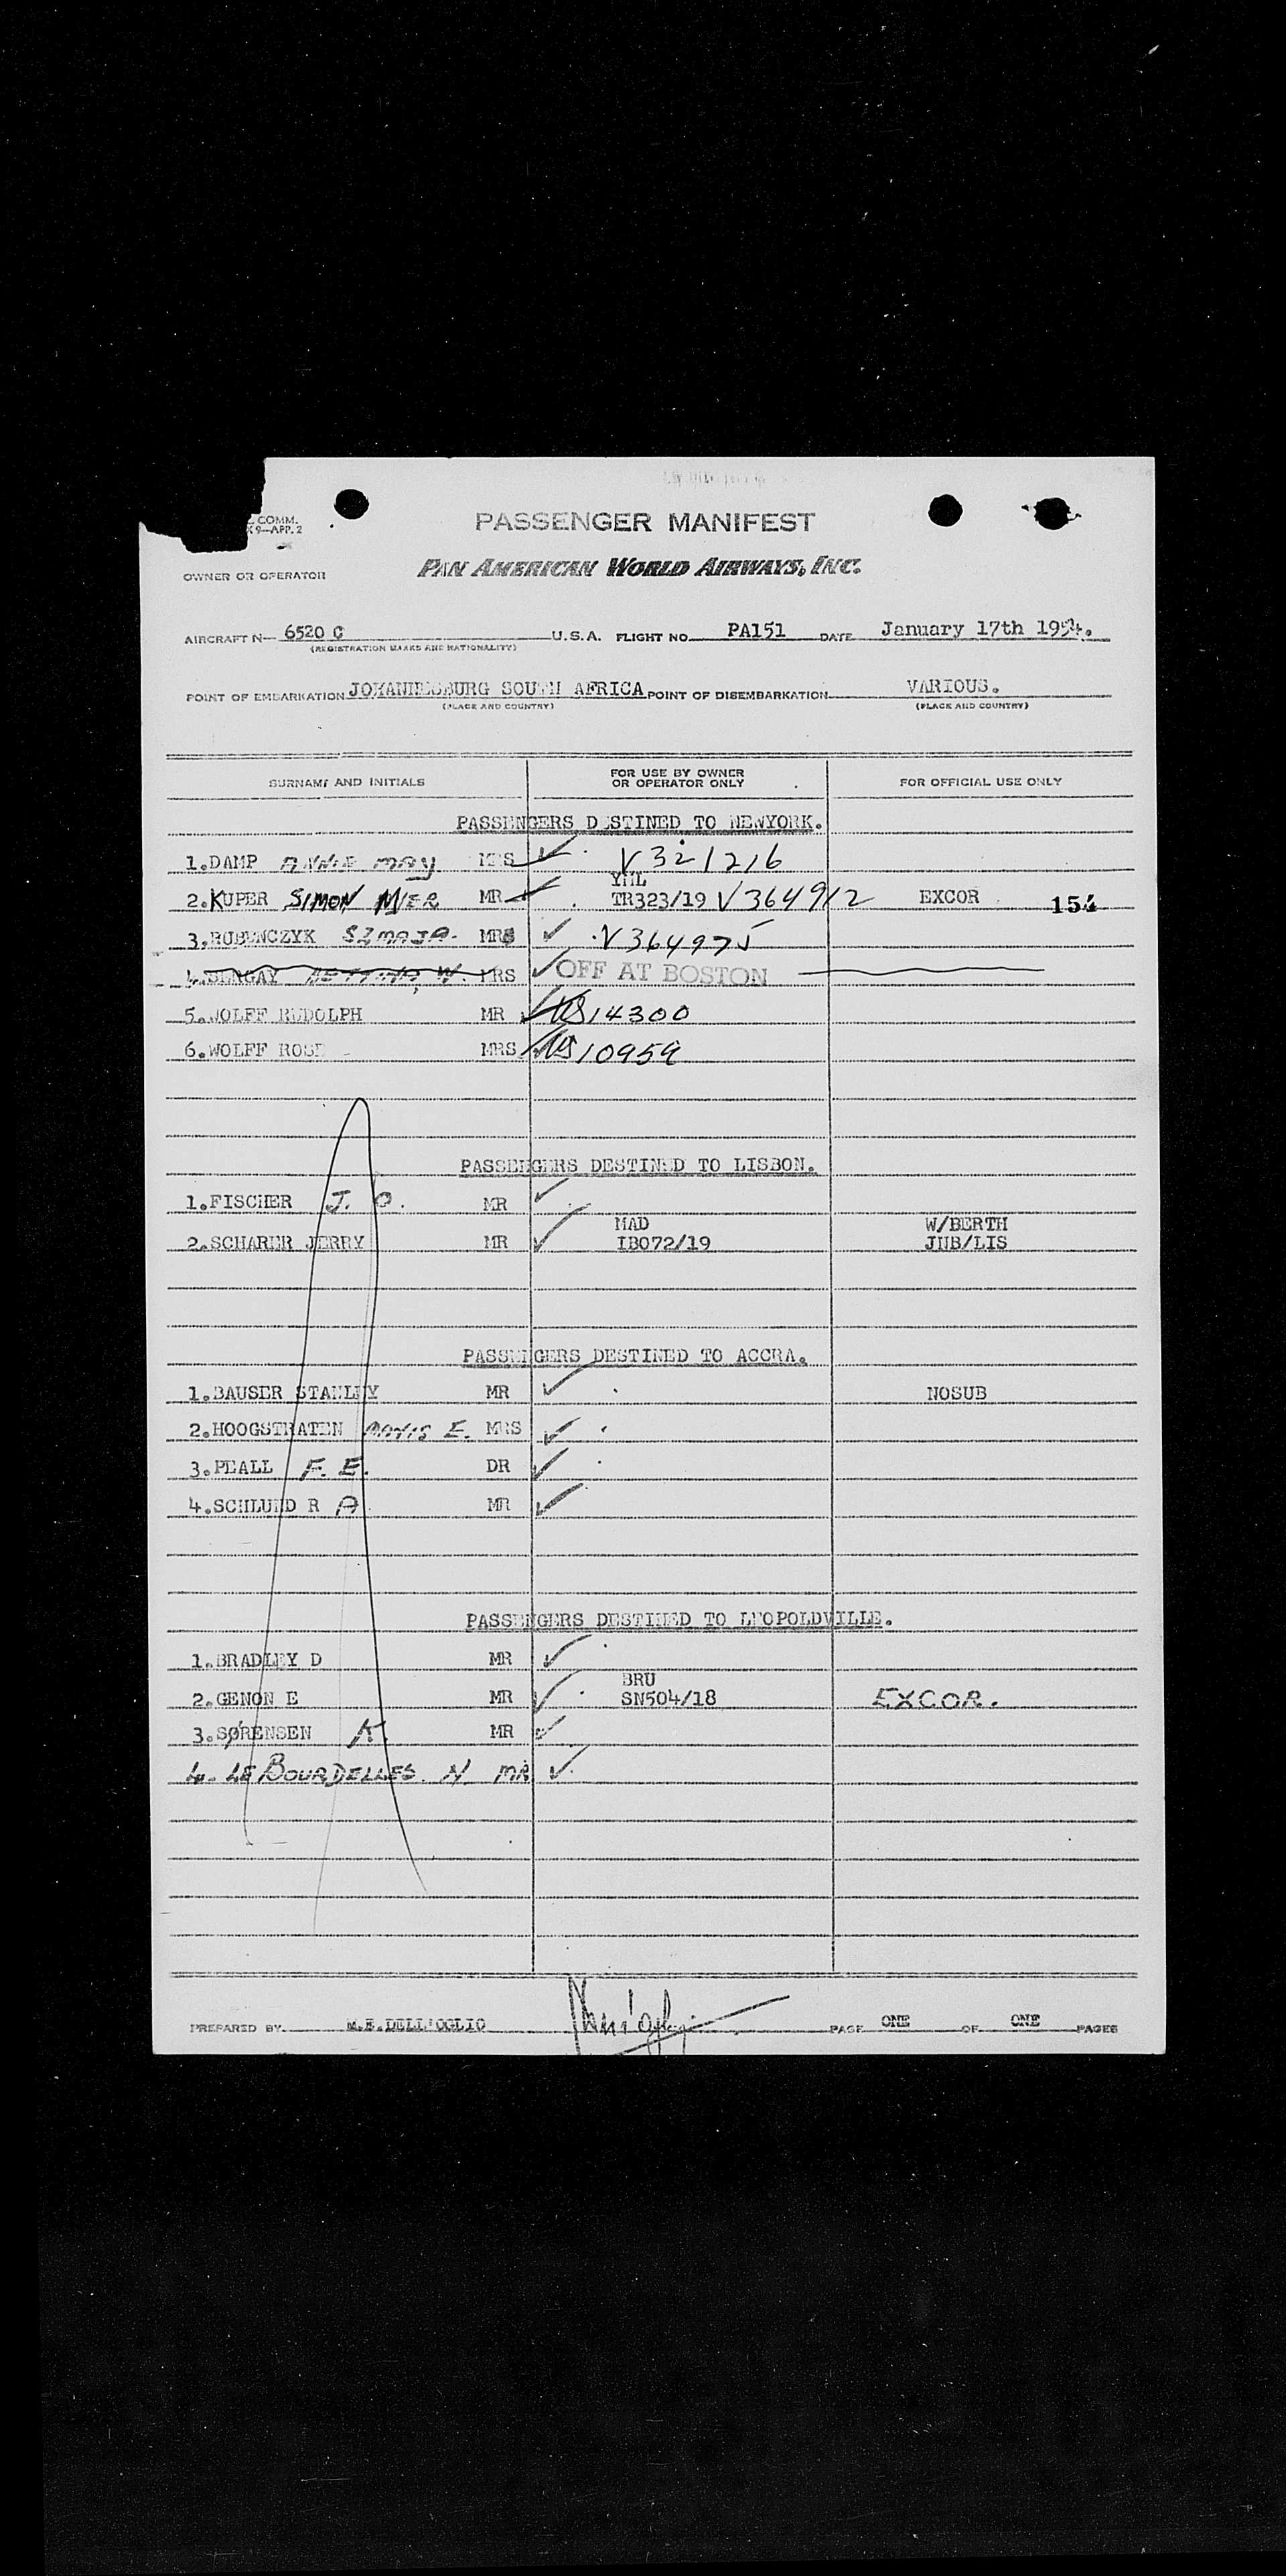 COMM.
9—APP. 2
PASSENGER MANIFEST
OWNER OR OPERATOR PAN AMERICAN WORLD AIRWAYS, INC.
AIRCRAFT N— 6520 C U.S.A. FLIGHT NO. PA151 DATE January 17th 1954.
(REGISTRATION MARKS AND NATIONALITY)
POINT OF EMBARKATION JOHANNESBURG SOUTH AFRICA POINT OF DISEMBARKATION VARIOUS.
(PLACE AND COUNTRY) (PLACE AND COUNTRY)
SURNAME AND INITIALS FOR USE BY OWNER OR OPERATOR ONLY FOR OFFICIAL USE ONLY
PASSENGERS DESTINED TO NEWYORK.
1.DAMP ANNIE MAY MRS V321216
YML
2.KUPER SIMON MIER MR TR323/19 V364912 EXCOR 154
3.RUBENCZYK SZMAJA. MR V364975
4. W. MRS OFF AT BOSTON
5.WOLFF RUDOLPH MR US14300
6.WOLFF ROSE MRS US10959
PASSENGERS DESTINED TO LISBON.
1.FISCHER J. O. MR
MAD W/BERTH
2.SCHARER JERRY MR IB072/19 JNB/LIS
PASSENGERS DESTINED TO ACCRA.
1.BAUSER STANLEY MR NOSUB
2.HOOGSTRATEN MAVIS E. MRS
3.PEALL F. E. DR
4.SCHLUED R A MR
PASSENGERS DESTINED TO LEOPOLDVILLE.
1.BRADLEY D MR
BRU
2.GENON E MR SN504/18 EXCOR.
3.SØRENSEN K. MR
4. LE BOURDELLES. N MR
PREPARED BY M.E.DELL'OGLIO PAGE ONE OF ONE PAGES